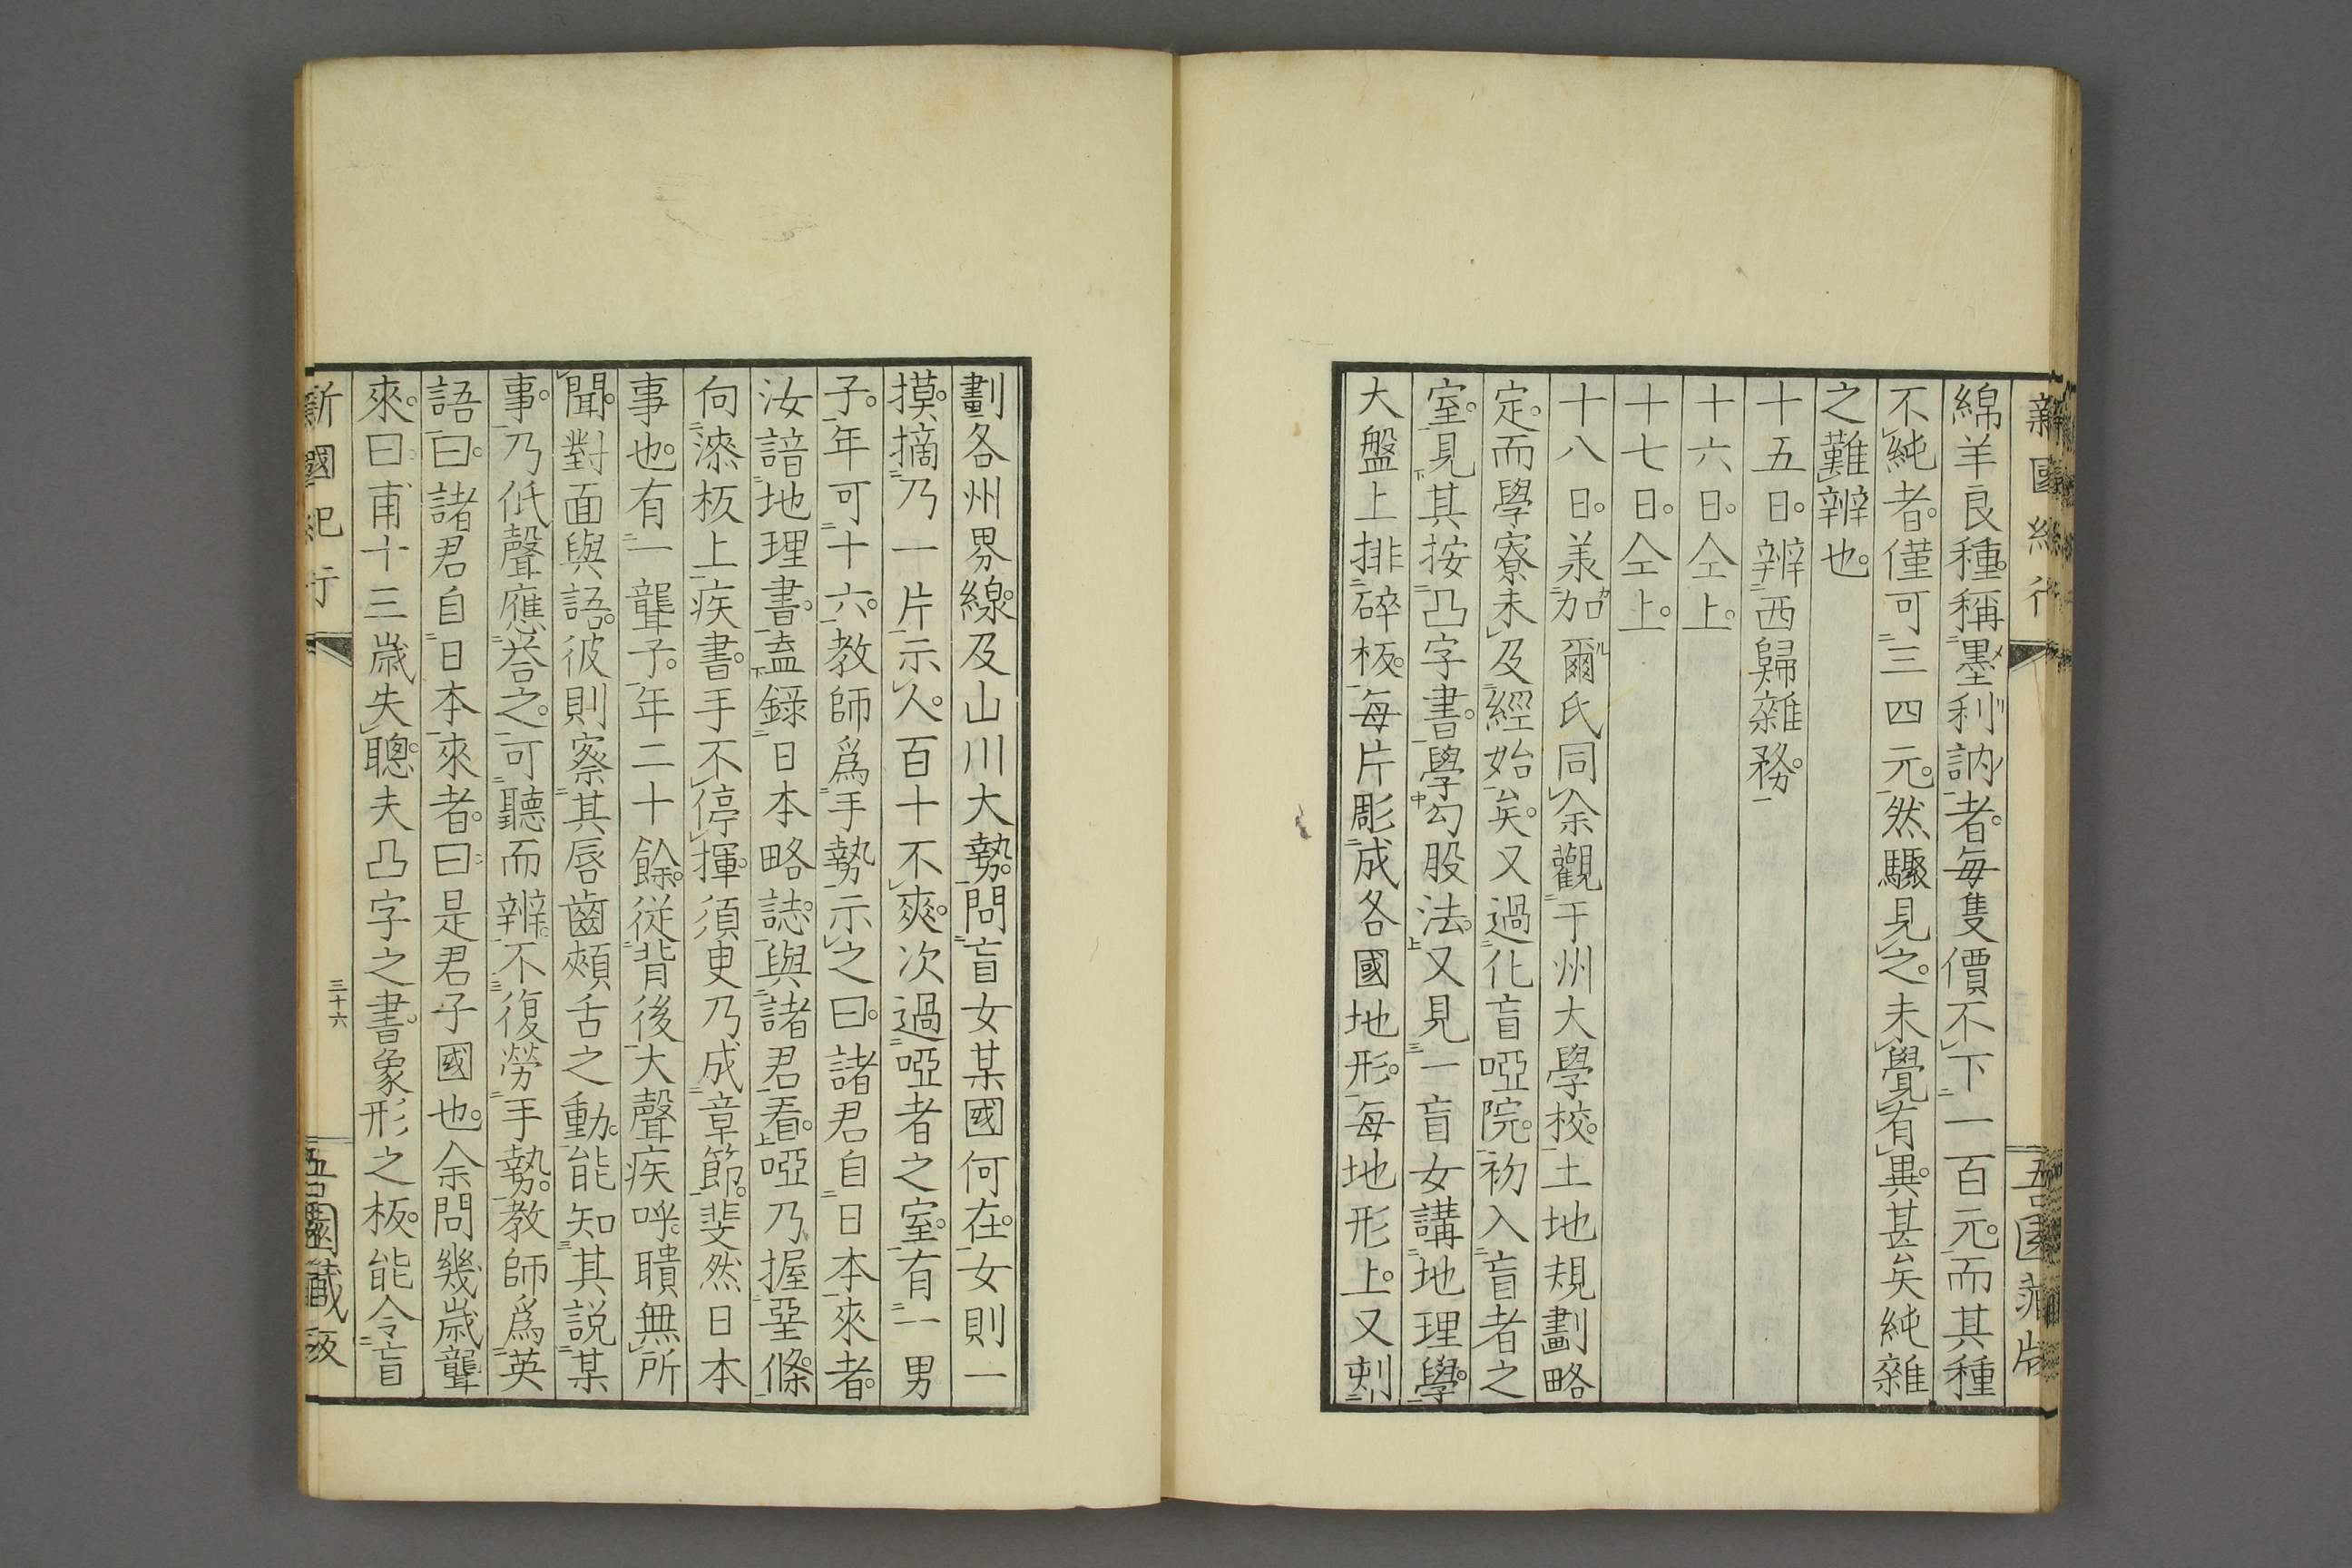 綿羊良種。稱墨利訥者。毎隻價不下一百元。而其種
不純者。僅可三四元。然驟見之。未覺有異。甚矣純雜
之難辨也。
十五日。辨西歸雜務。
十六日。仝上。
十七日。仝上。
十八日。美加爾氏同余觀于州大學校。土地規劃略
定。而學寮未及經始矣。又過化盲啞院。初入盲者之
室。見其按凸字書。學勾股法。又見一盲女講地理學。
大盤上排碎板。毎片彫成各國地形。毎地形上。又刻
劃各州界線。及山川大勢。問盲女某國何在。女則一
摸。摘乃一片示人。百十不爽。次過啞者之室。有一男
子。年可十六。教師爲手勢示之曰。諸君自日本來者。
汝諳地理書。盍錄日本略誌。與諸君看。啞乃握堊條。
向漆板上疾書。手不停揮。須臾乃成章節。斐然日本
事也。有一聾子。年二十餘。從背後大聲疾呼。聵無所
聞。對面與語。彼則察其唇齒頰舌之動。能知其説某
事。乃低聲應荅之。可聽而辨。不復勞手勢。教師爲英
語曰。諸君自日本來者。曰是君子國也。余問幾歳聾
來。曰甫十三歳失聰。夫凸字之書。象形之板。能令盲
新國紀行
三十六
吾園藏板